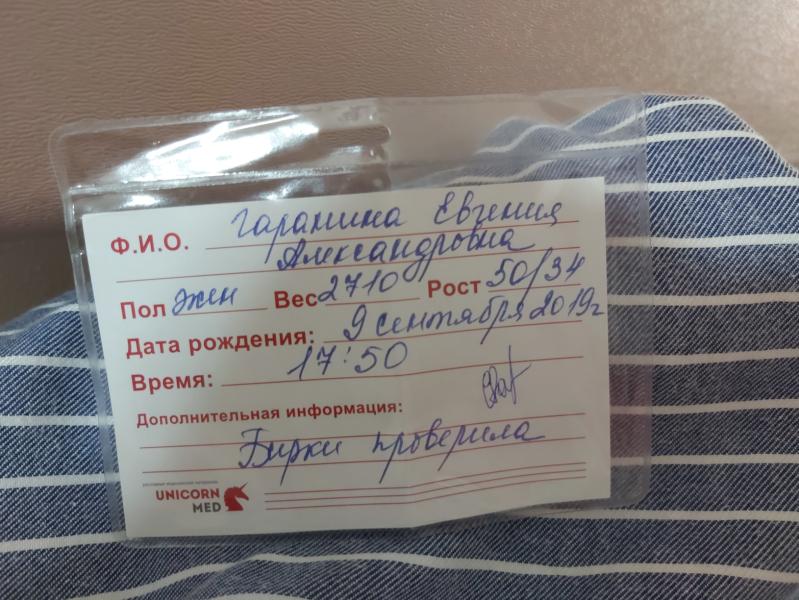 Ф.И.О. Гаранина Евгения
Александровна
Пол жен Вес 2710 Рост 50/34
Дата рождения: 9 сентября 2019г
Время: 17:50
Дополнительная информация:
Бирки проверила
UNICORN
MED